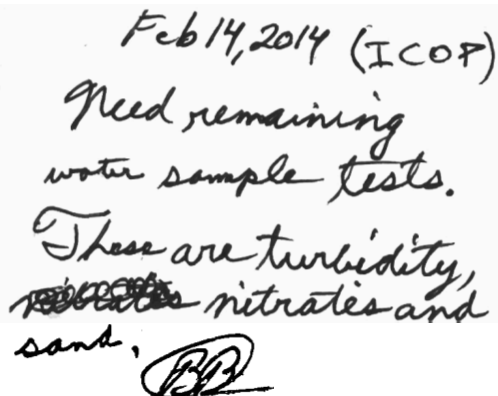 Feb 14, 2014 (ICOP)
Need remaining
water sample tests.
These are turbidity,
nitrates and
sand,
BB